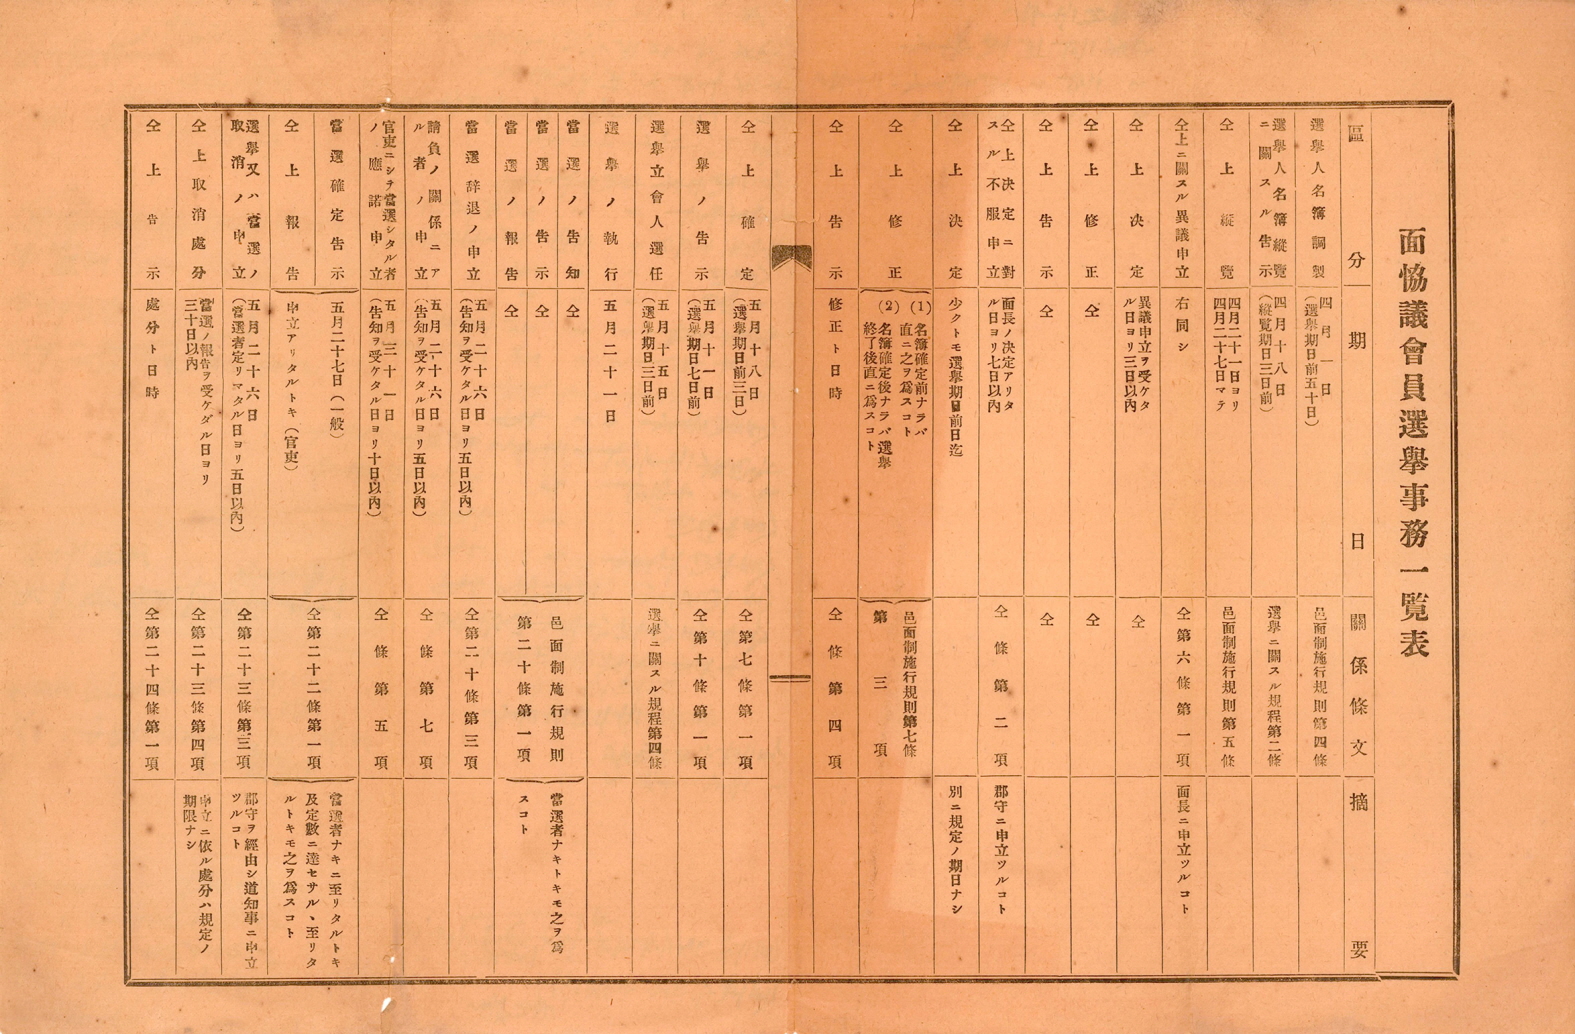 面協議會員選擧事務一覽表
區分
期日
關係條文
摘要
選擧人名簿調製
四月一日
(選擧期日前五十日)
邑面制施行規則第四條
選擧人名簿縱覽
ニ關スル告示
四月十八日
(縱覽期日三日前)
選擧ニ關スル規程第二條
仝上縱覽
四月二十一日ヨリ
四月二十七日マテ
邑面制施行規則第五條
仝上ニ關スル異議申立
右同シ
仝第六條第一項
面長ニ申立ツルコト
仝上決定
異議申立ヲ受ケタ
ル日ヨリ三日以內
仝
仝上修正
仝
仝
仝上告示
仝
仝
仝上決定ニ對
スル不服申立
面長ノ決定アリタ
ル日ヨリ七日以內
仝條第二項
郡守ニ申立ツルコト
仝上決定
少クトモ選擧期日前日迄
別ニ規定ノ期日ナシ
仝上修正
(1)名簿確定前ナラバ
直ニ之ヲ爲スコト
(2)名簿確定後ナラバ選擧
終了後直ニ爲スコト
邑面制施行規則第七條
第三項
仝上告示
修正ト日時
仝條第四項
仝上確定
五月十八日
(選擧期日前三日)
仝第七條第一項
選擧ノ告示
五月十一日
(選擧期日七日前)
仝第十條第一項
選擧立會人選任
五月十五日
(選擧期日三日前)
選擧ニ關スル規程第四條
選擧ノ執行
五月二十一日
當選ノ告知
仝
當選ノ告示
仝
當選ノ報告
仝
邑面制施行規則
第二十條第一項
當選者ナキトキモ之ヲ爲
スコト
當選辭退ノ申立
五月二十六日
(告知ヲ受ケタル日ヨリ五日以內)
仝第二十條第三項
請負ノ關係ニア
ル者ノ申立
五月二十六日
(告知ヲ受ケタル日ヨリ五日以內)
仝條第七項
官吏ニシテ當選シタル者
ノ應諾申立
五月三十一日
(告知ヲ受ケタル日ヨリ十日以內)
仝條第五項
當選確定告示
五月二十七日(一般)
仝上報告
申立アリタルトキ(官吏)
仝第二十二條第一項
當選者ナキニ至リタルトキ
及定數ニ達セサルヽ至リタ
ルトキモ之ヲ爲スコト
選擧又ハ當選ノ
取消ノ申立
五月二十六日
(當選者定リマタル日ヨリ五日以內)
仝第二十三條第三項
郡守ヲ經由シ道知事ニ申立
ツルコト
仝上取消處分
當選ノ報告ヲ受ケダル日ヨリ
三十日以內
仝第二十三條第四項
申立ニ依ル處分ハ規定ノ
期限ナシ
仝上告示
處分ト日時
仝第二十四條第一項